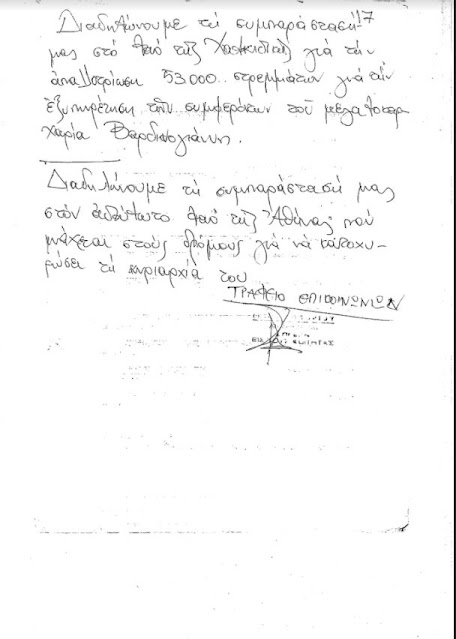 17
Διαδηλώνουμε τή συμπαράστασή
μας στό λαό τῆς Χαλκιδικῆς γιά τήν
ἀπαλλοτρίωση 53000 στρεμμάτων γιά τήν
ἐξυπηρέτηση τῶν συμφερόντων τοῦ μεγαλοκαρ
χαρία Βαρδινογιάννη.
Διαδηλώνουμε τή συμπαράστασή μας
στόν λαό τῆς Ἀθήνας πού
μάχεται στούς δρόμους γιά νά κατοχυ-
ρώσει τή κυριαρχία του
ΓΡΑΦΕΙΟ ΕΠΙΚΟΙΝΩΝΙΩΝ